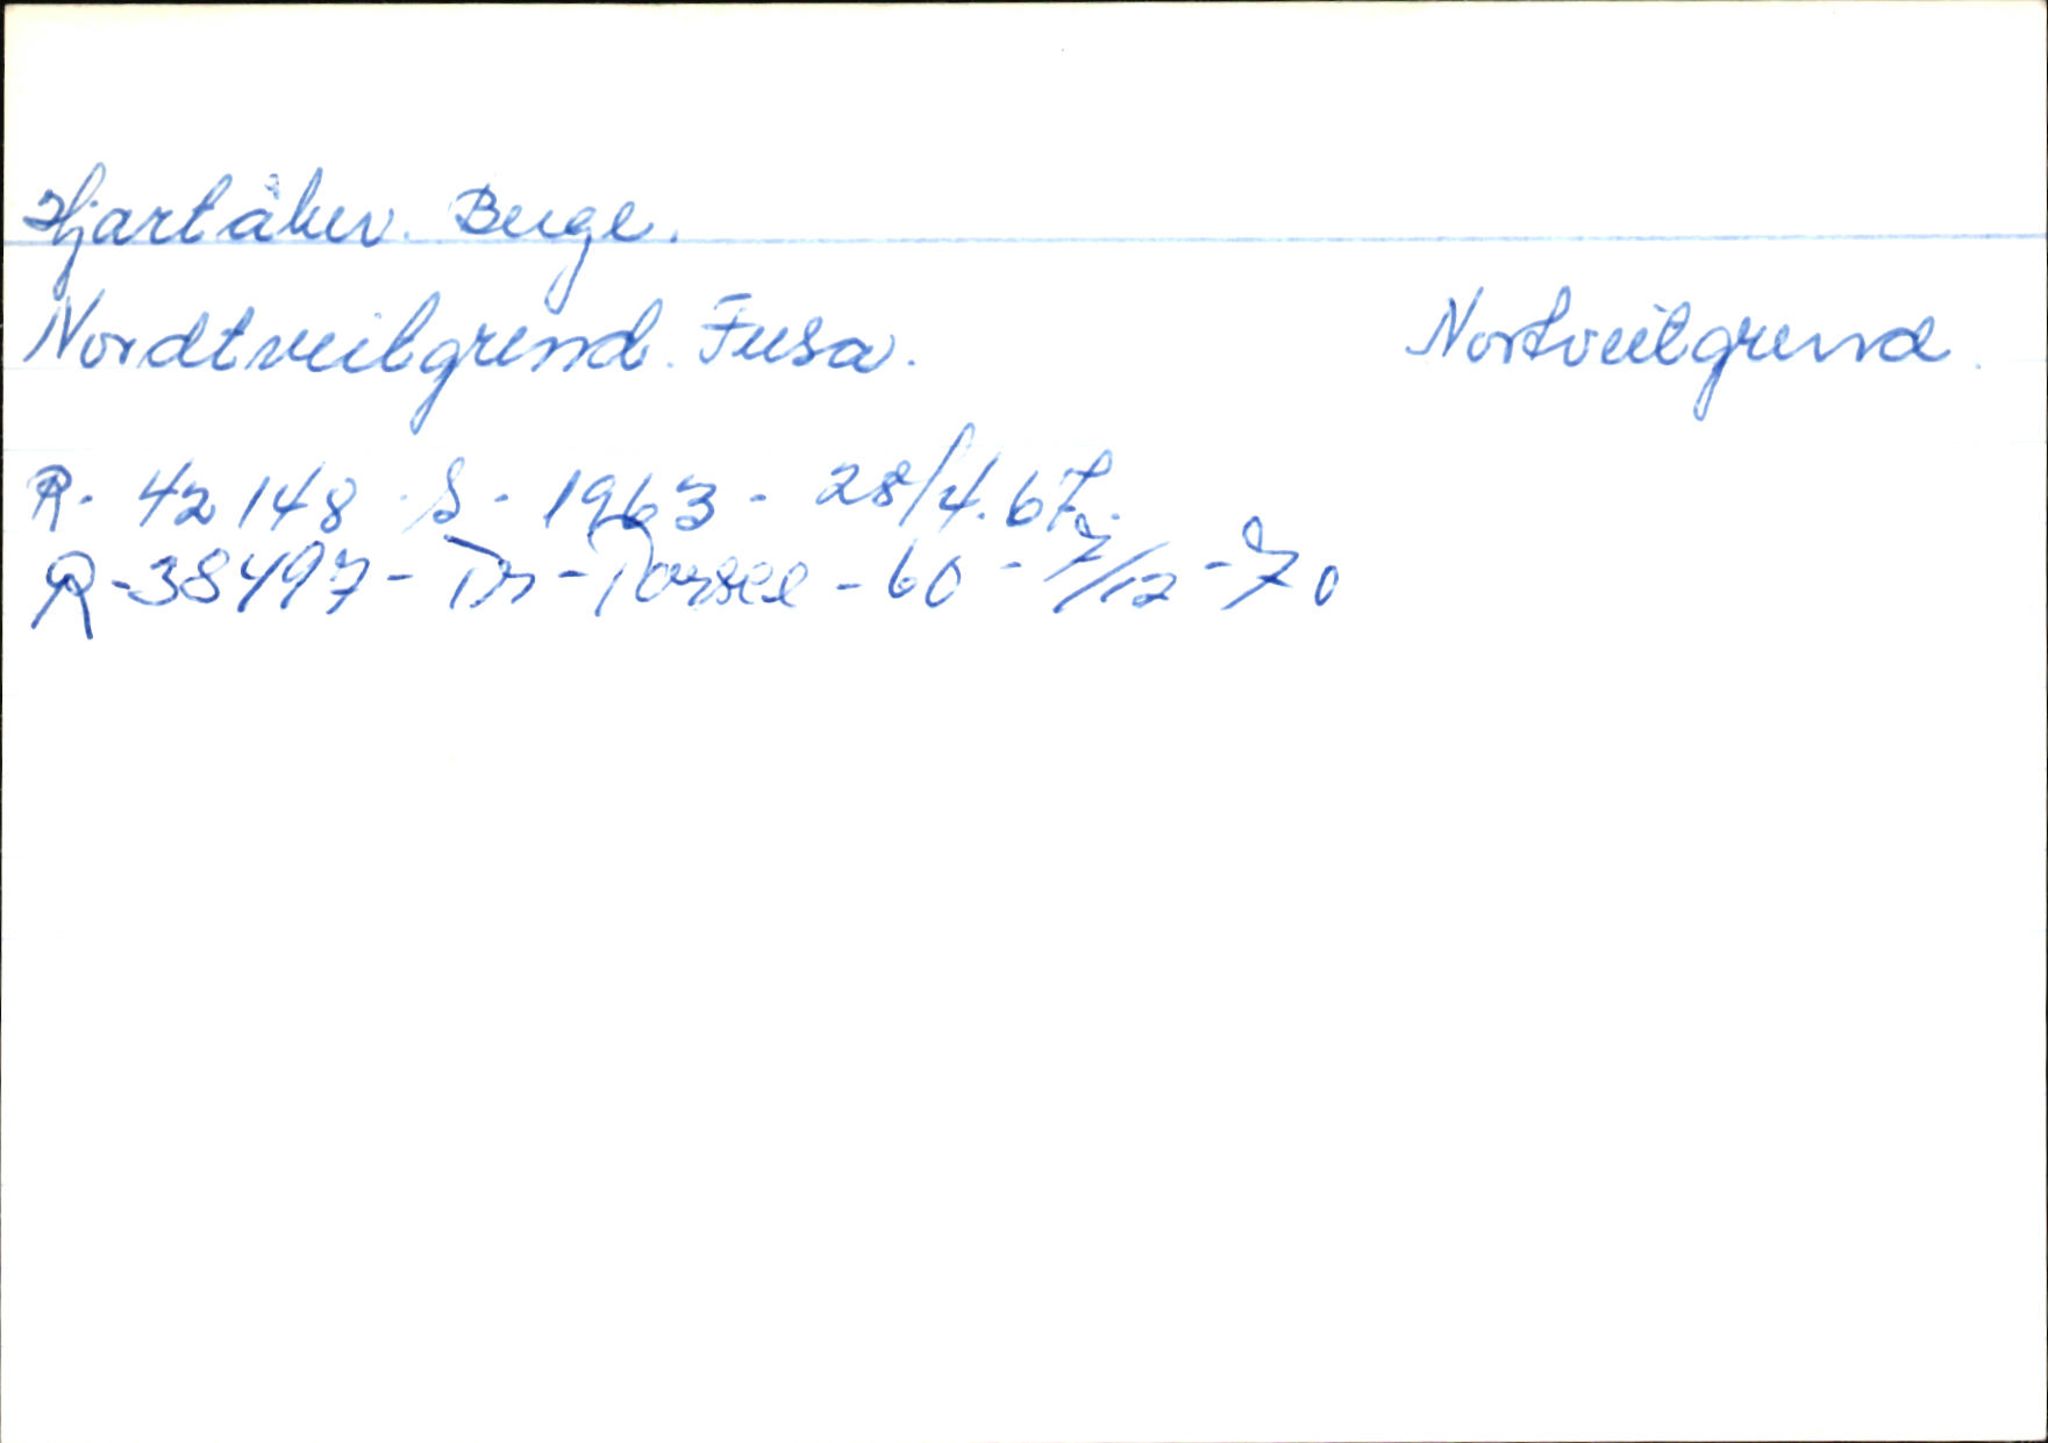 Hjartåker. Berge.
Nordtveitgrend. Fusa. Nortveitgrend.
R. 42148 S - 1963 - 28/4.67.
R-38497 - Tr - - 60 - 7/12 - 70